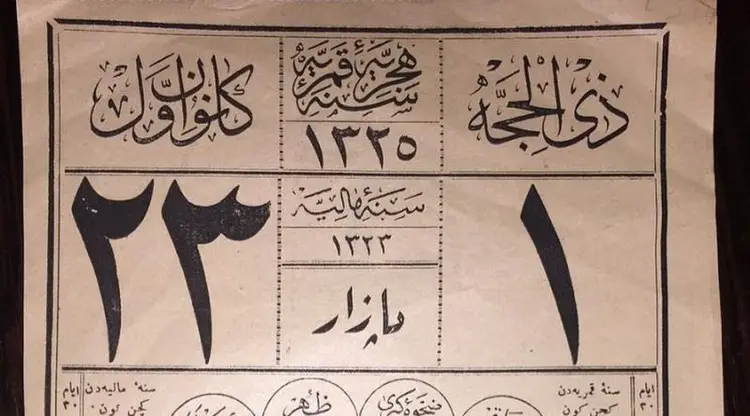 ذی الحجه
هجریهٔ قمریه سنه
كانون اول
١٣٢٥
١
سنهٔ مالیه
٢٣
١٣٢٣
پازار
ایام
سنهٔ قمریه‌دن
ظهر
سنهٔ مالیه‌دن
ایام
٣٠
كچن كون
ضحوهٔ كبری
كچن كون
٣٠